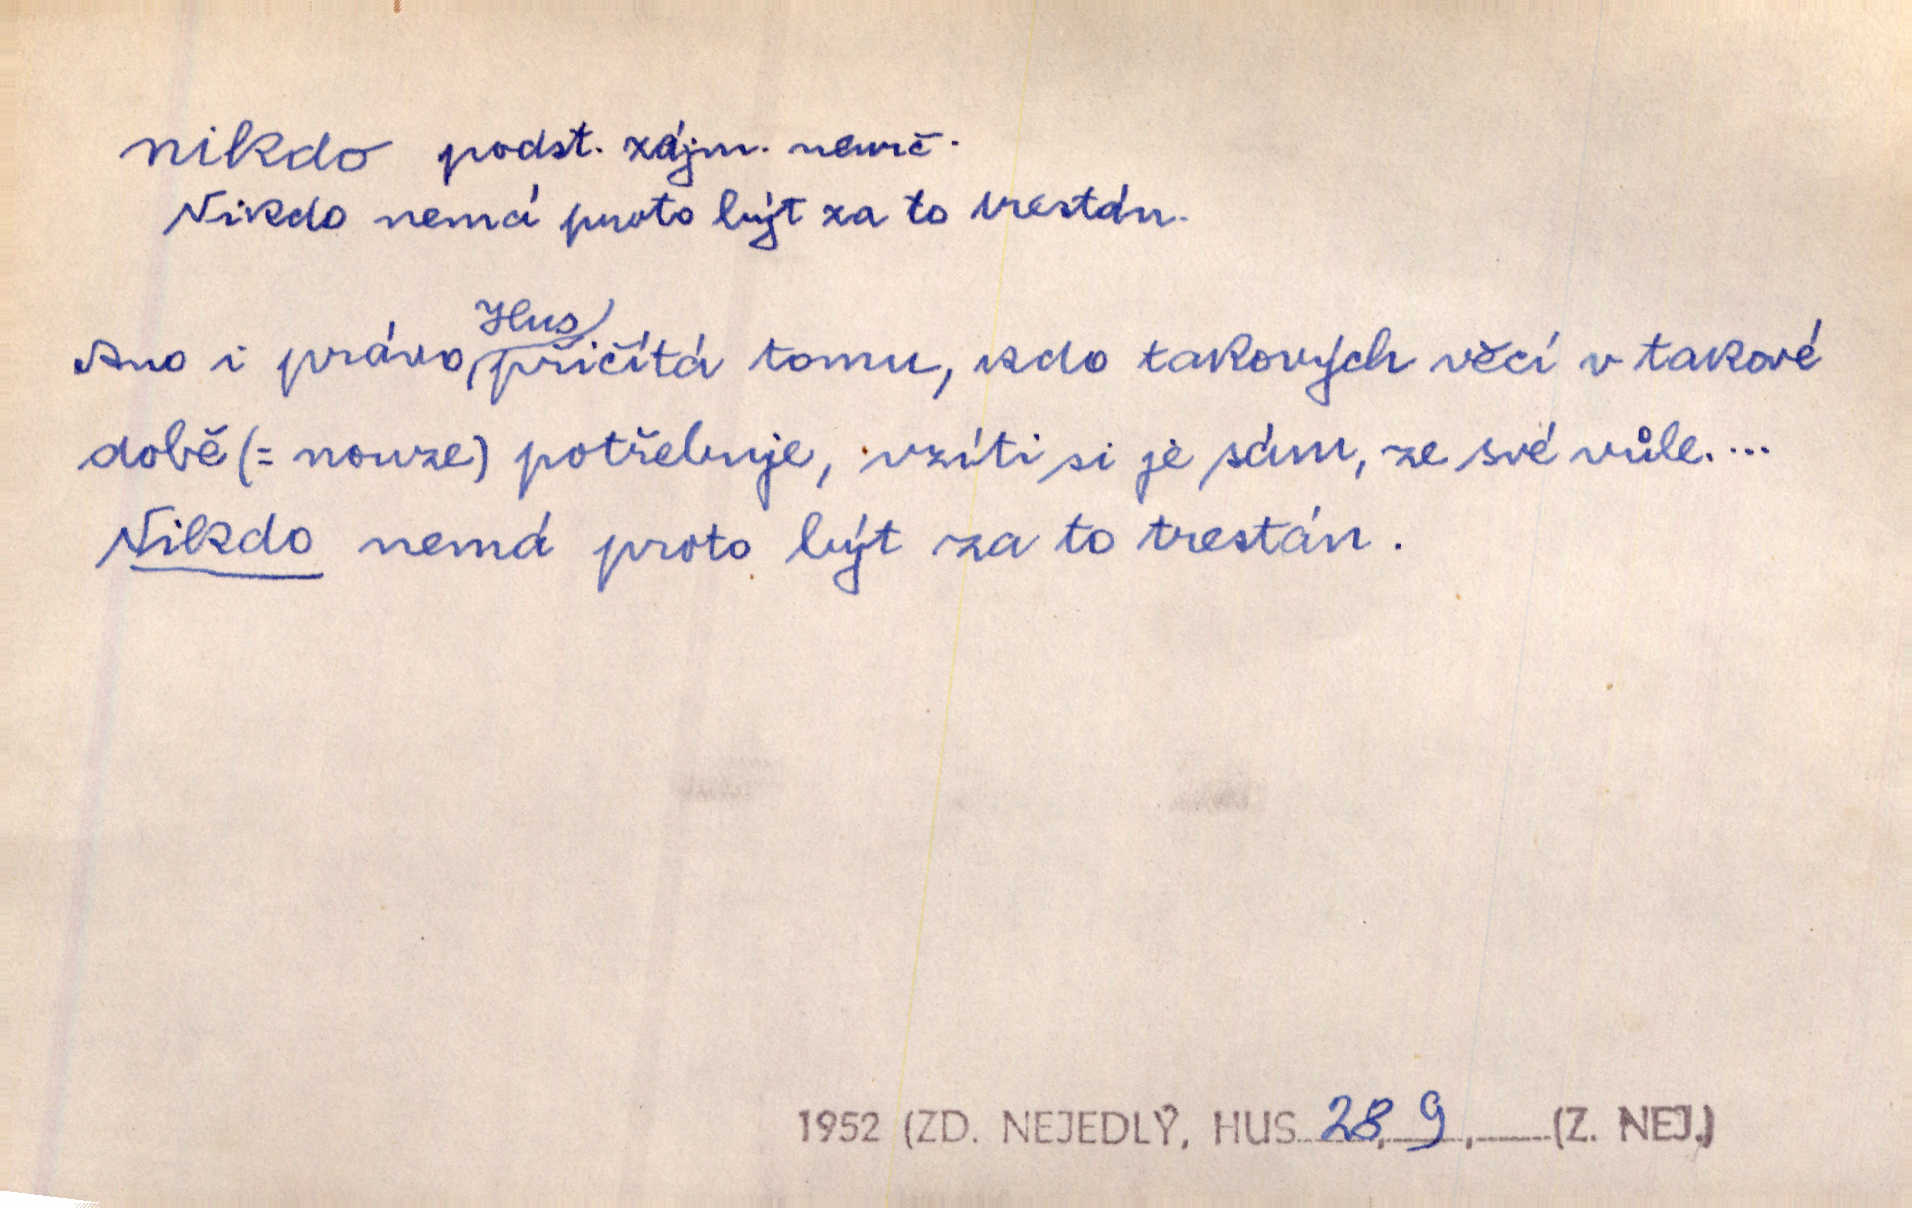 nikdo podst. zájm. neurč.
Nikdo nemá proto být za to trestán.
Hus
Ano i právo, přičítá tomu, kdo takových věcí v takové
době (= nouze) potřebuje, vzíti si je sám, ze své vůle. ...
Nikdo nemá proto být za to trestán.
1952 (ZD. NEJEDLÝ, HUS 28, 9, (Z. NEJ.)